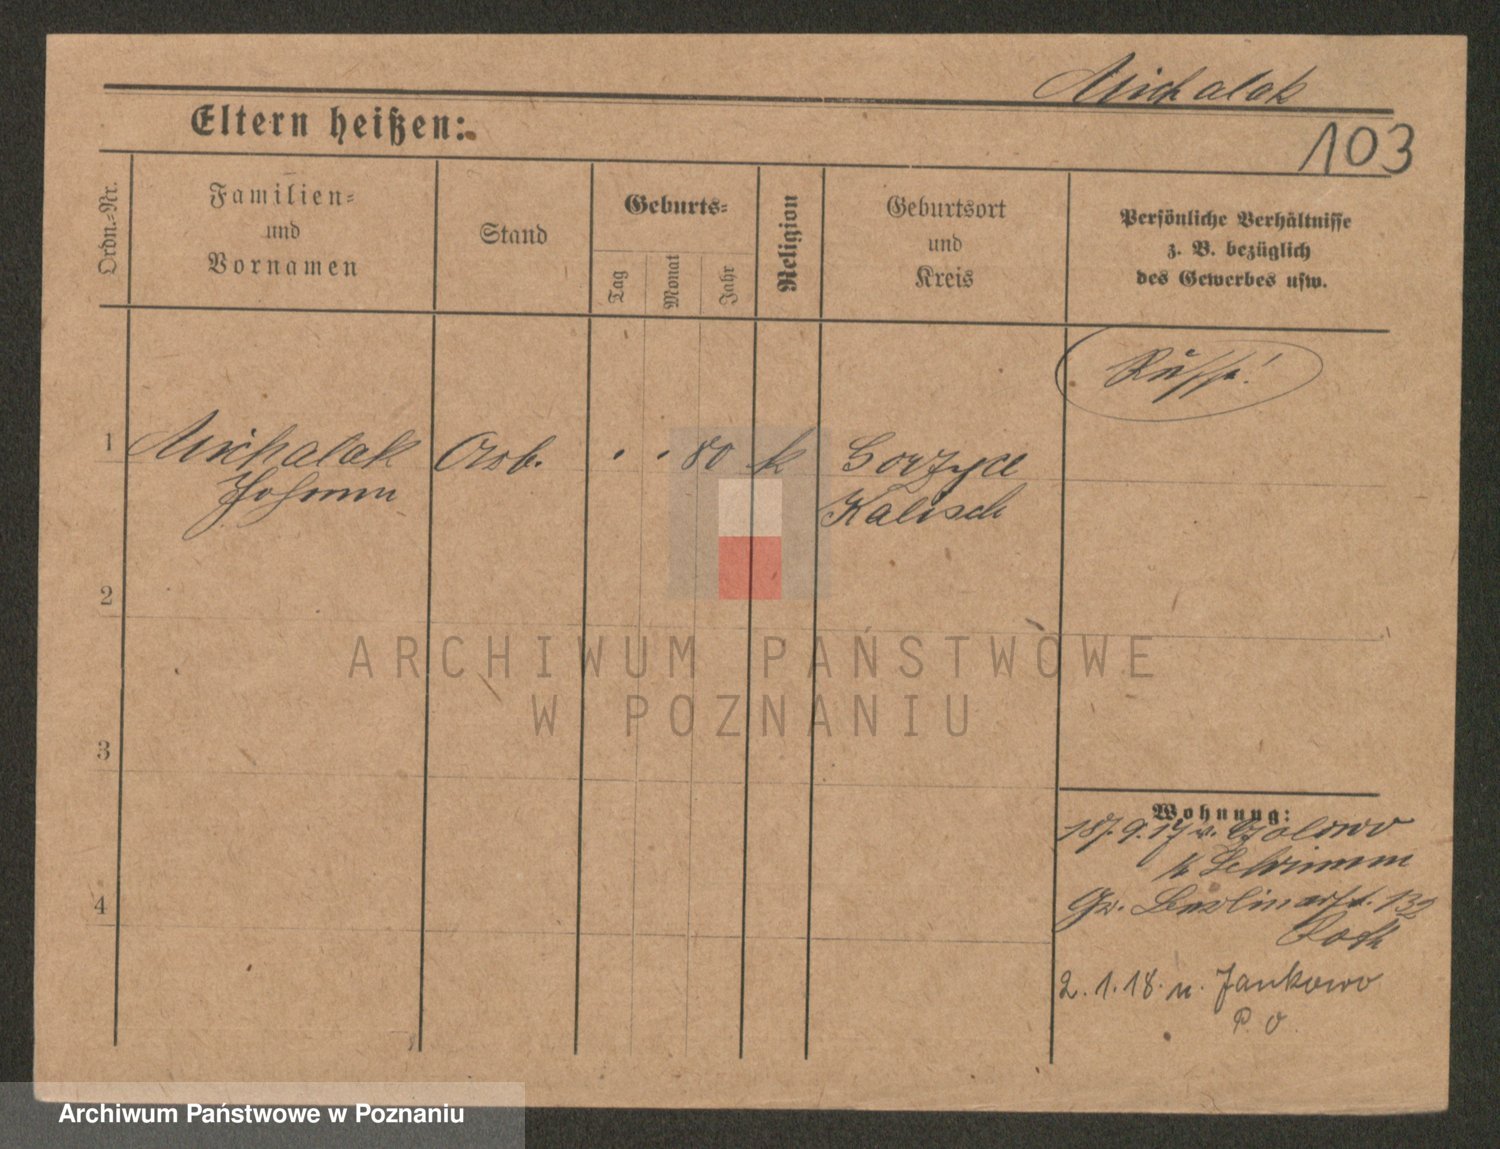 Michalak
Eltern heißen:
103
Ordn.-Nr.
Familien-
und
Vornamen
Stand
Geburts-
Tag
Monat
Jahr
Religion
Geburtsort
und
Kreis
Persönliche Verhältnisse
z. B. bezüglich
des Gewerbes usw.
Russe!
1
Michalak
Johann
Arb.
. . 80
k
Gorzyce
Kalisch
2
3
4
Wohnung:
18.9.17 v.
k Schrimm
Gr. Berlinerst. 132
Roth
2.1.18. n. Jankowo
P. O.
ARCHIWUM PAŃSTWOWE
W POZNANIU
Archiwum Państwowe w Poznaniu